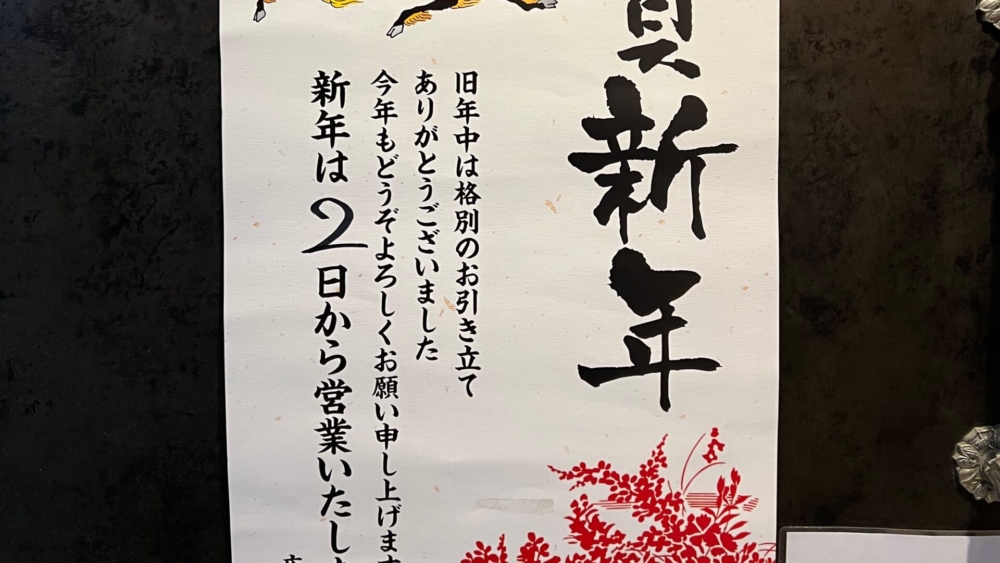 賀新年
旧年中は格別のお引き立て
ありがとうございました
今年もどうぞよろしくお願い申し上げます
新年は2日から営業いたしま